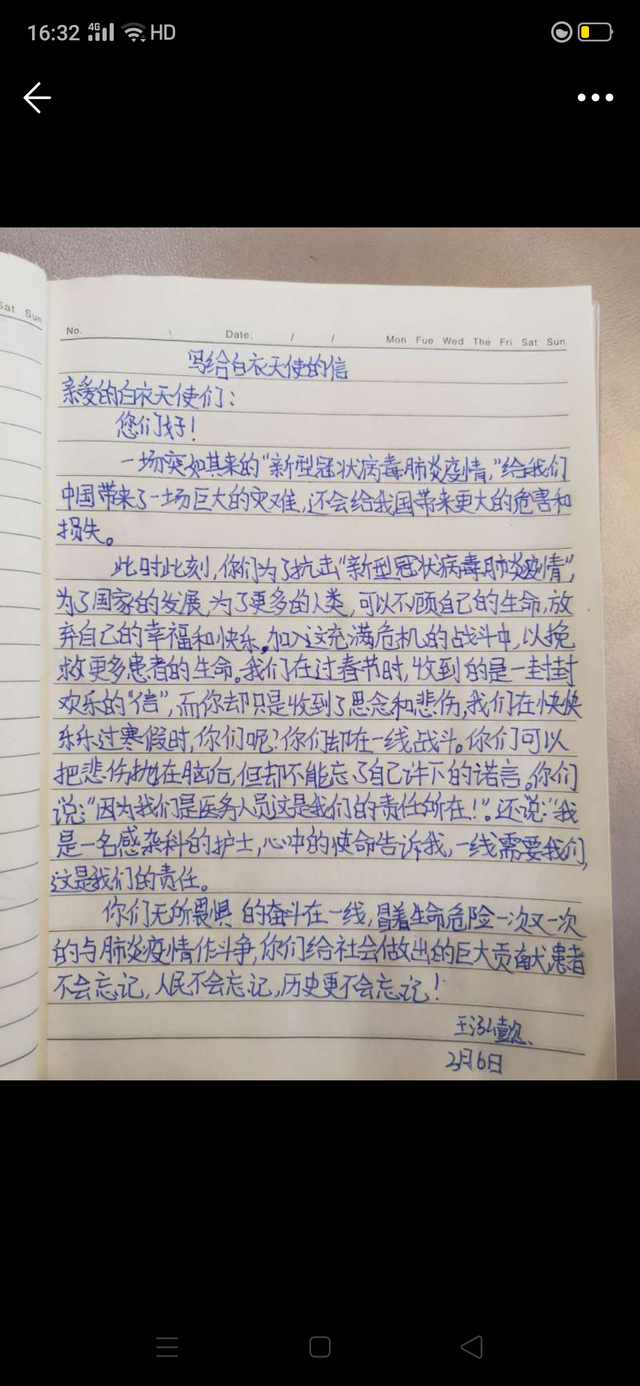 16:32 4G HD
No. Date: / / Mon Tue Wed Thu Fri Sat Sun
Sat Sun
写给白衣天使的信
亲爱的白衣天使们:
您们好!
一场突如其来的“新型冠状病毒肺炎疫情,”给我们
中国带来了一场巨大的灾难,还会给我国带来更大的危害和
损失。
此时此刻,你们为了抗击“新型冠状病毒肺炎疫情”,
为了国家的发展,为了更多的人类,可以不顾自己的生命,放
弃自己的幸福和快乐,加入这充满危机的战斗中,以挽
救更多患者的生命。我们在过春节时,收到的是一封封
欢乐的“信”,而你却只是收到了思念和悲伤,我们在快快
乐乐过寒假时,你们呢?你们却在一线战斗。你们可以
把悲伤抛在脑后,但却不能忘了自己许下的诺言。你们
说:“因为我们是医务人员这是我们的责任所在!”。还说:“我
是一名感染科的护士,心中的使命告诉我,一线需要我们,
这是我们的责任。
你们无所畏惧的奋斗在一线,冒着生命危险一次又一次
的与肺炎疫情作斗争,你们给社会做出的巨大贡献患者
不会忘记,人民不会忘记,历史更不会忘记!
2月6日